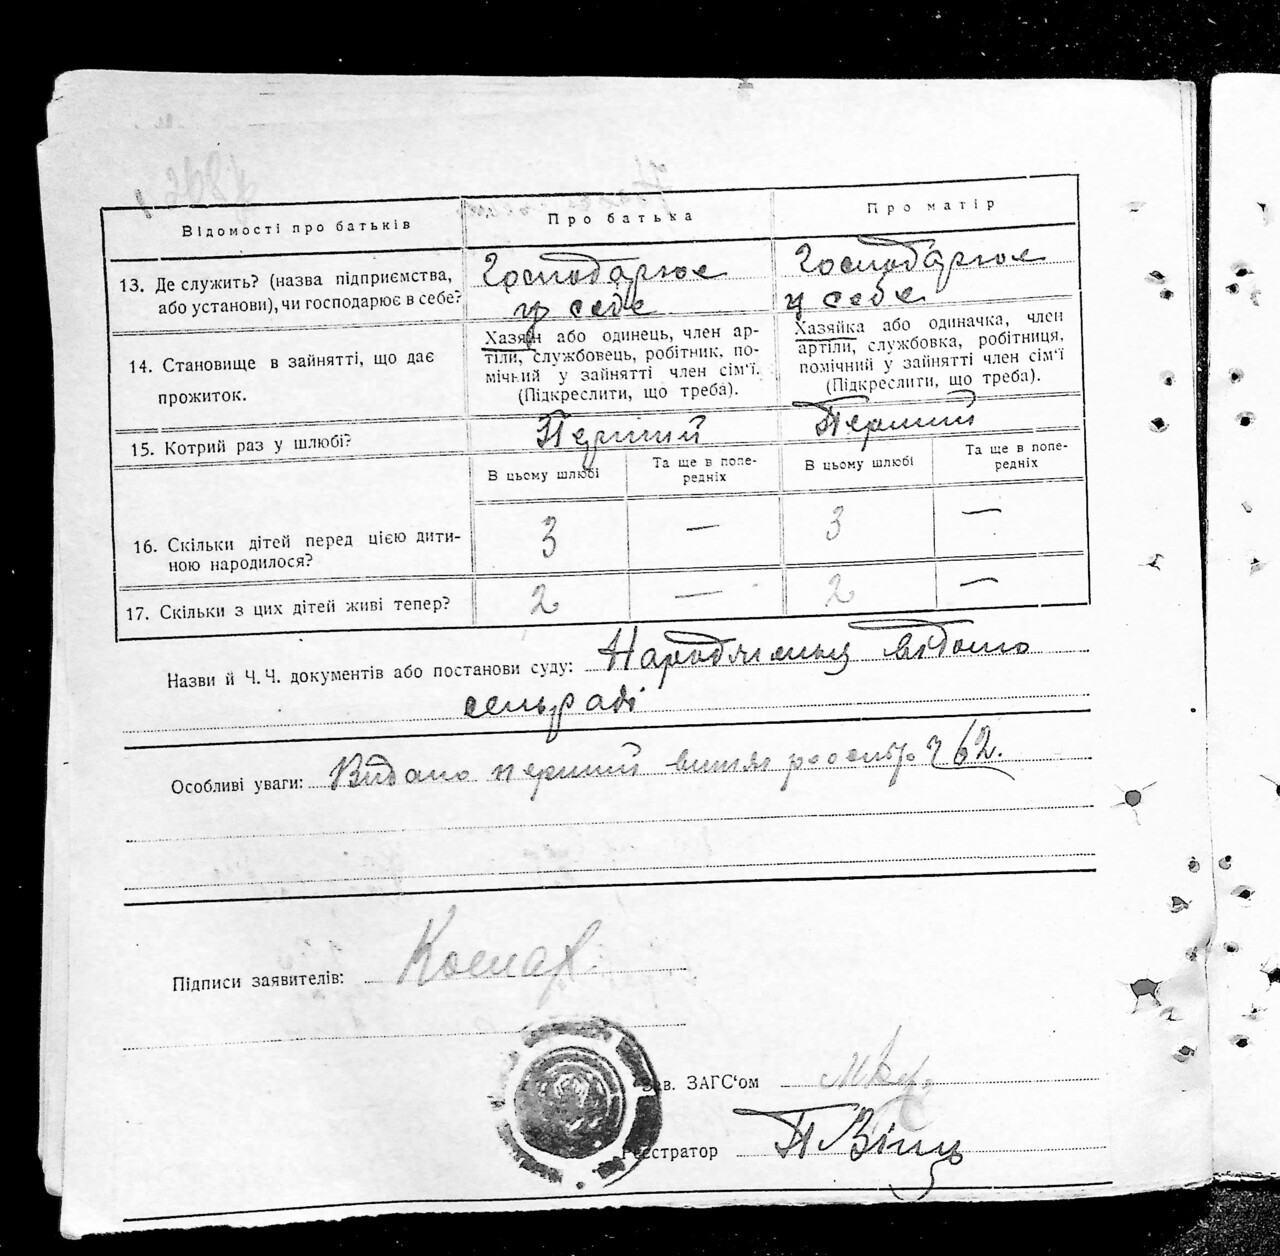 Відомості про батьків
Про батька
Про матір
13. Де служить? (назва підприємства,
або установи), чи господарює в себе?
Господарює
у себе
Господарює
у себе
14. Становище в зайнятті, що дає
прожиток.
Хазяїн або одинець, член ар-
тіли, службовець, робітник, по-
мічний у зайнятті член сім'ї.
(Підкреслити, що треба).
Хазяйка або одиначка, член
артіли, службовка, робітниця,
помічний у зайнятті член сім'ї
(Підкреслити, що треба).
15. Котрий раз у шлюбі?
Перший
Перший
В цьому шлюбі
Та ще в попе-
редніх
В цьому шлюбі
Та ще в попе-
редніх
16. Скільки дітей перед цією дити-
ною народилося?
3
—
3
—
17. Скільки з цих дітей живі тепер?
2
—
2
—
Назви й Ч.Ч. документів або постанови суду: відомо
сельраді
Особливі уваги: Видано перший ч 62.
Підписи заявителів:
Зав. ЗАГС'ом
Реєстратор